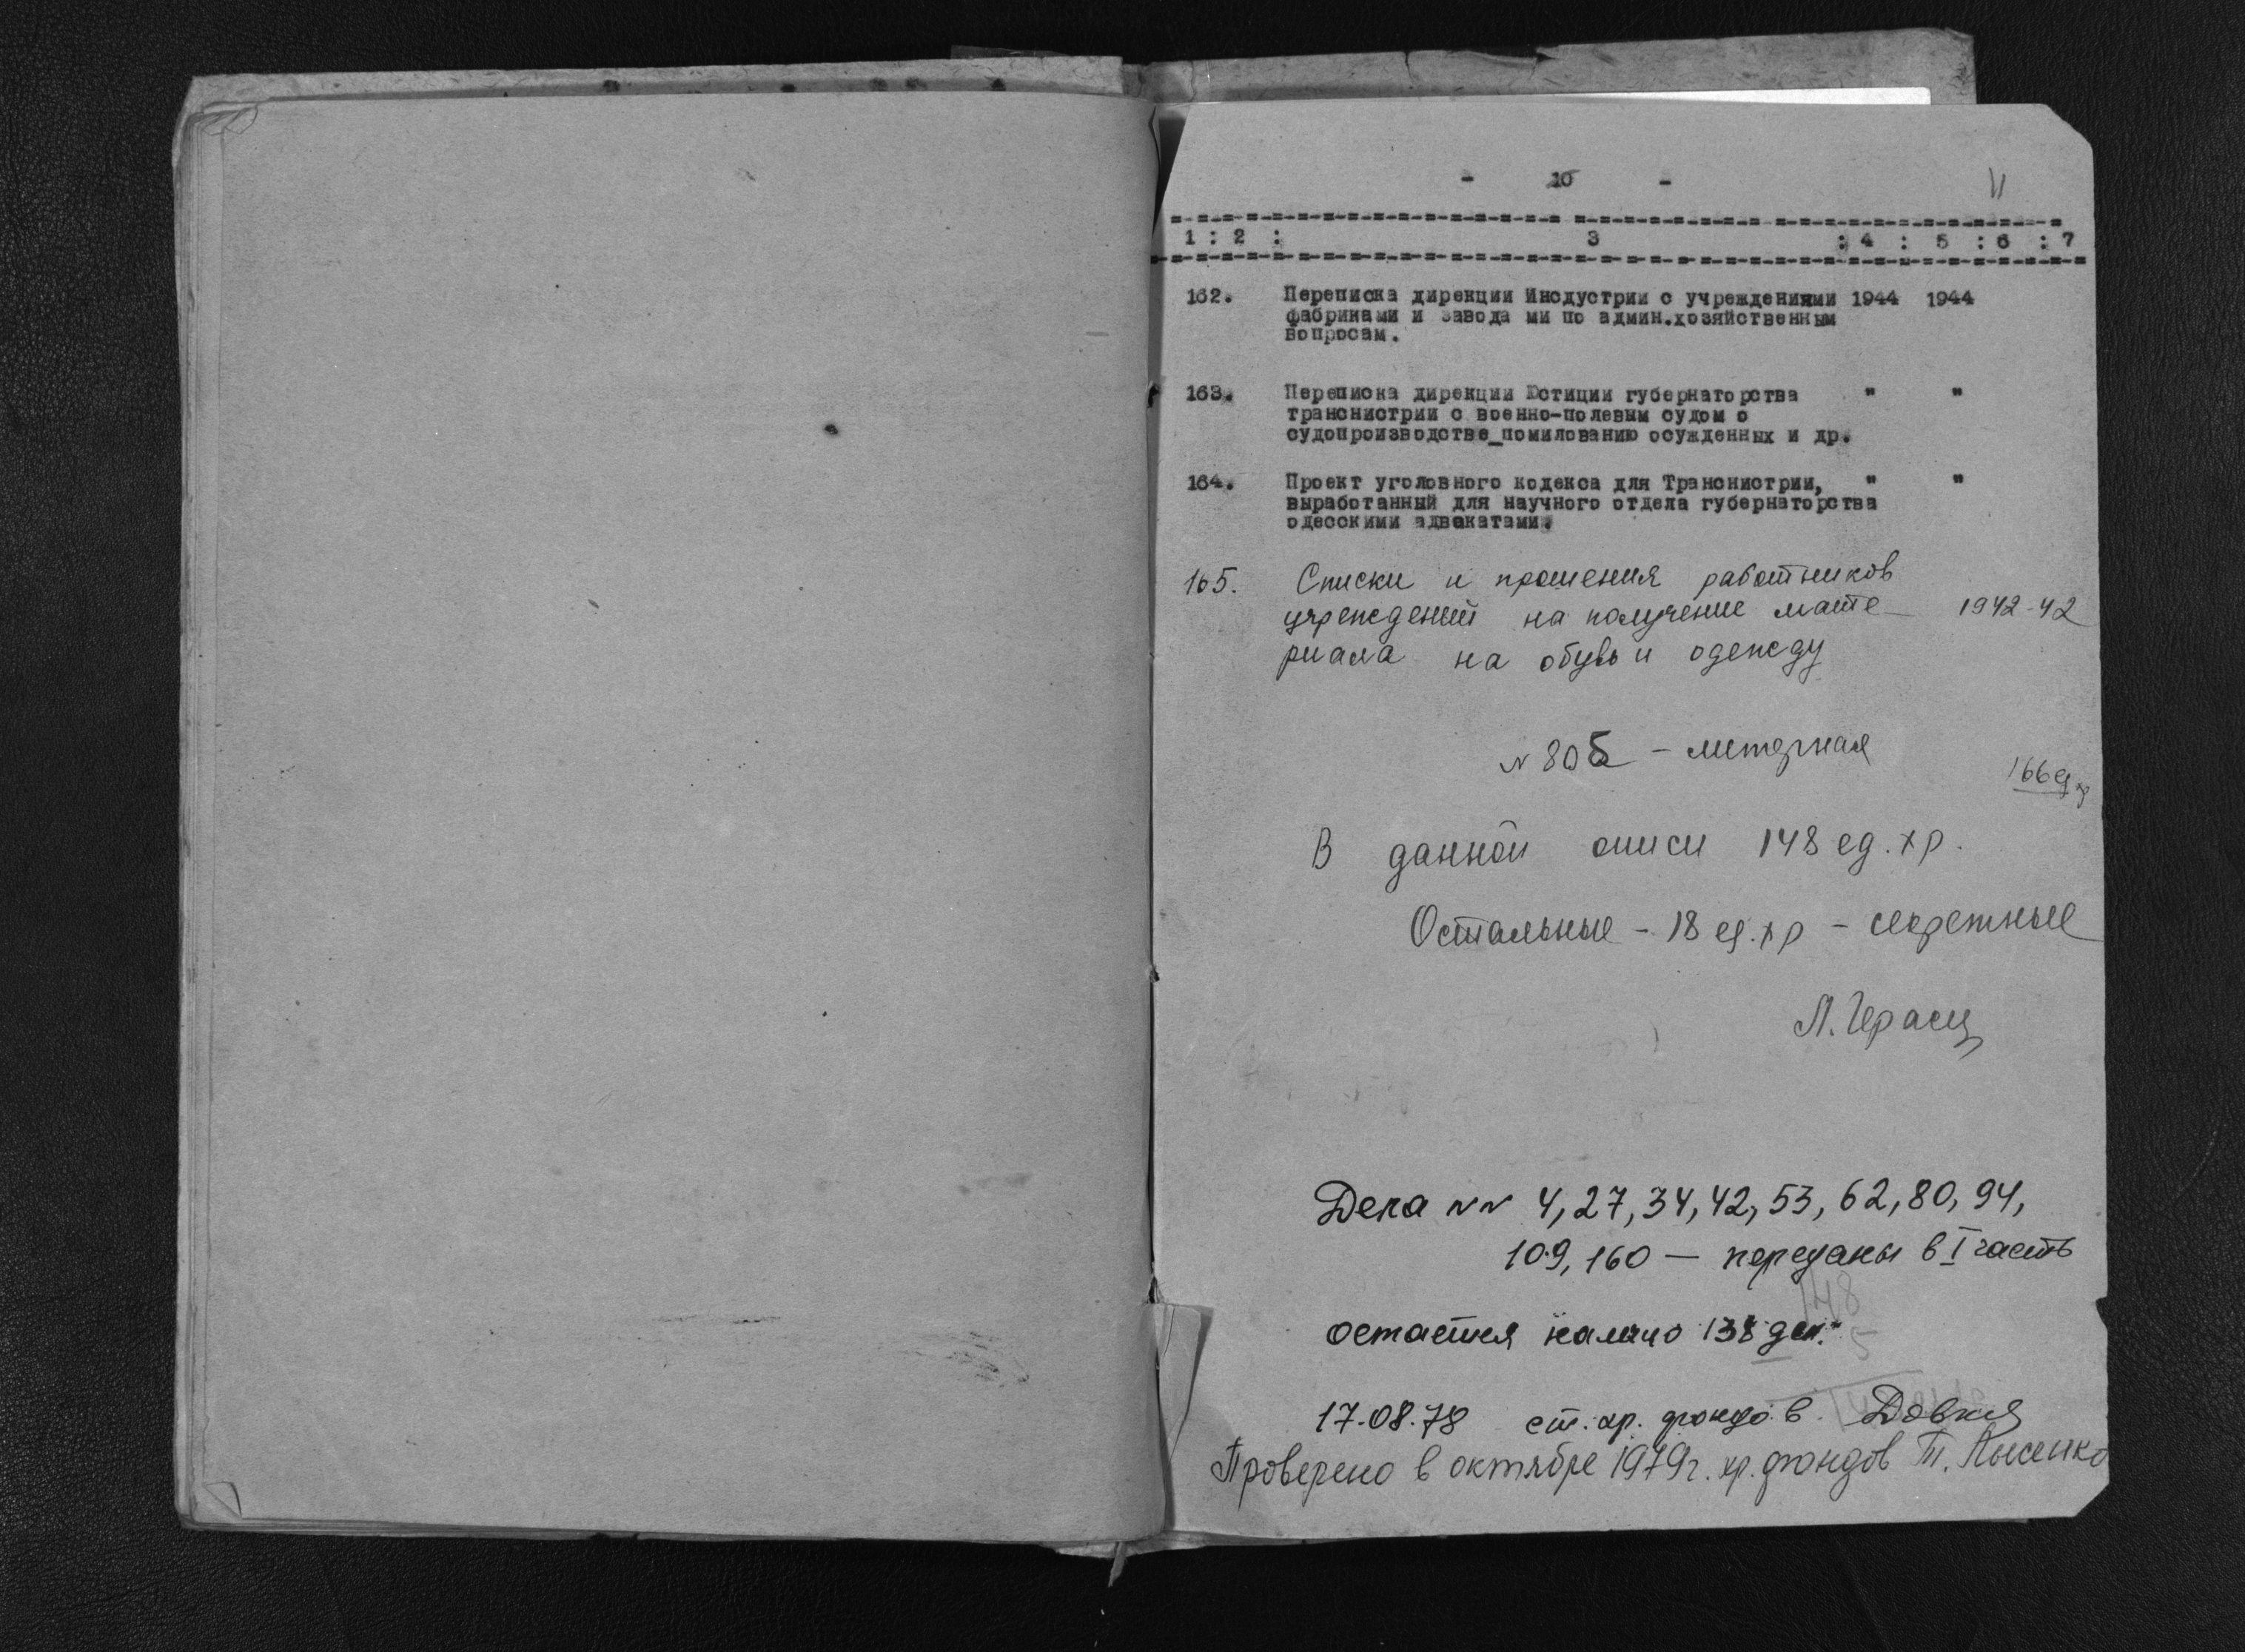 - 10 -
11
1 : 2 : 3 : 4 : 5 : 6 : 7
162. Переписка дирекции Инсдустрии с учреждениями 1944 1944
фабриками и завода ми по админ.хозяйственным
вопросам.
163. Переписка дирекции Юстиции губернаторства " "
транснистрии с военно-полевым судом о
судопроизводстве_помилованию осужденных и др.
164. Проект уголовного кодекса для Транснистрии, " "
выработанный для научного отдела губернаторства
одесскими адвокатами.
165. Списки и прошения работников
учреждений на получение мате- 1942-42
риала на обувь и одежду
№ 80б - литерная
166 ед. хр
В данной описи 148 ед. хр.
Остальные - 18 ед. хр - секретные
Л. Герасц
Дела №№ 4, 27, 34, 42, 53, 62, 80, 94,
109, 160 — переданы в I часть
148
остается налицо 138 дел.
5
17.08.78 ст. хр. фондов Довкя
Проверено в октябре 1979г. хр. фондов Т. Лысенко